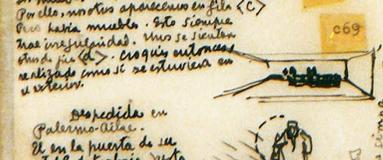 Por ello, nosotros aparecemos en fila <C>
Pero había muebles. Esto siempre
trae irregularidad. Unos se sientan
otros de pie <d>. Croquis entonces
realizado como si se estuviera en
el exterior.
C69
Despedida en
Palermo-Ailae.
El en la puerta de su